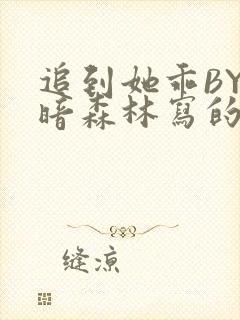 追到她乖BY
暗森林寫的
缝凉